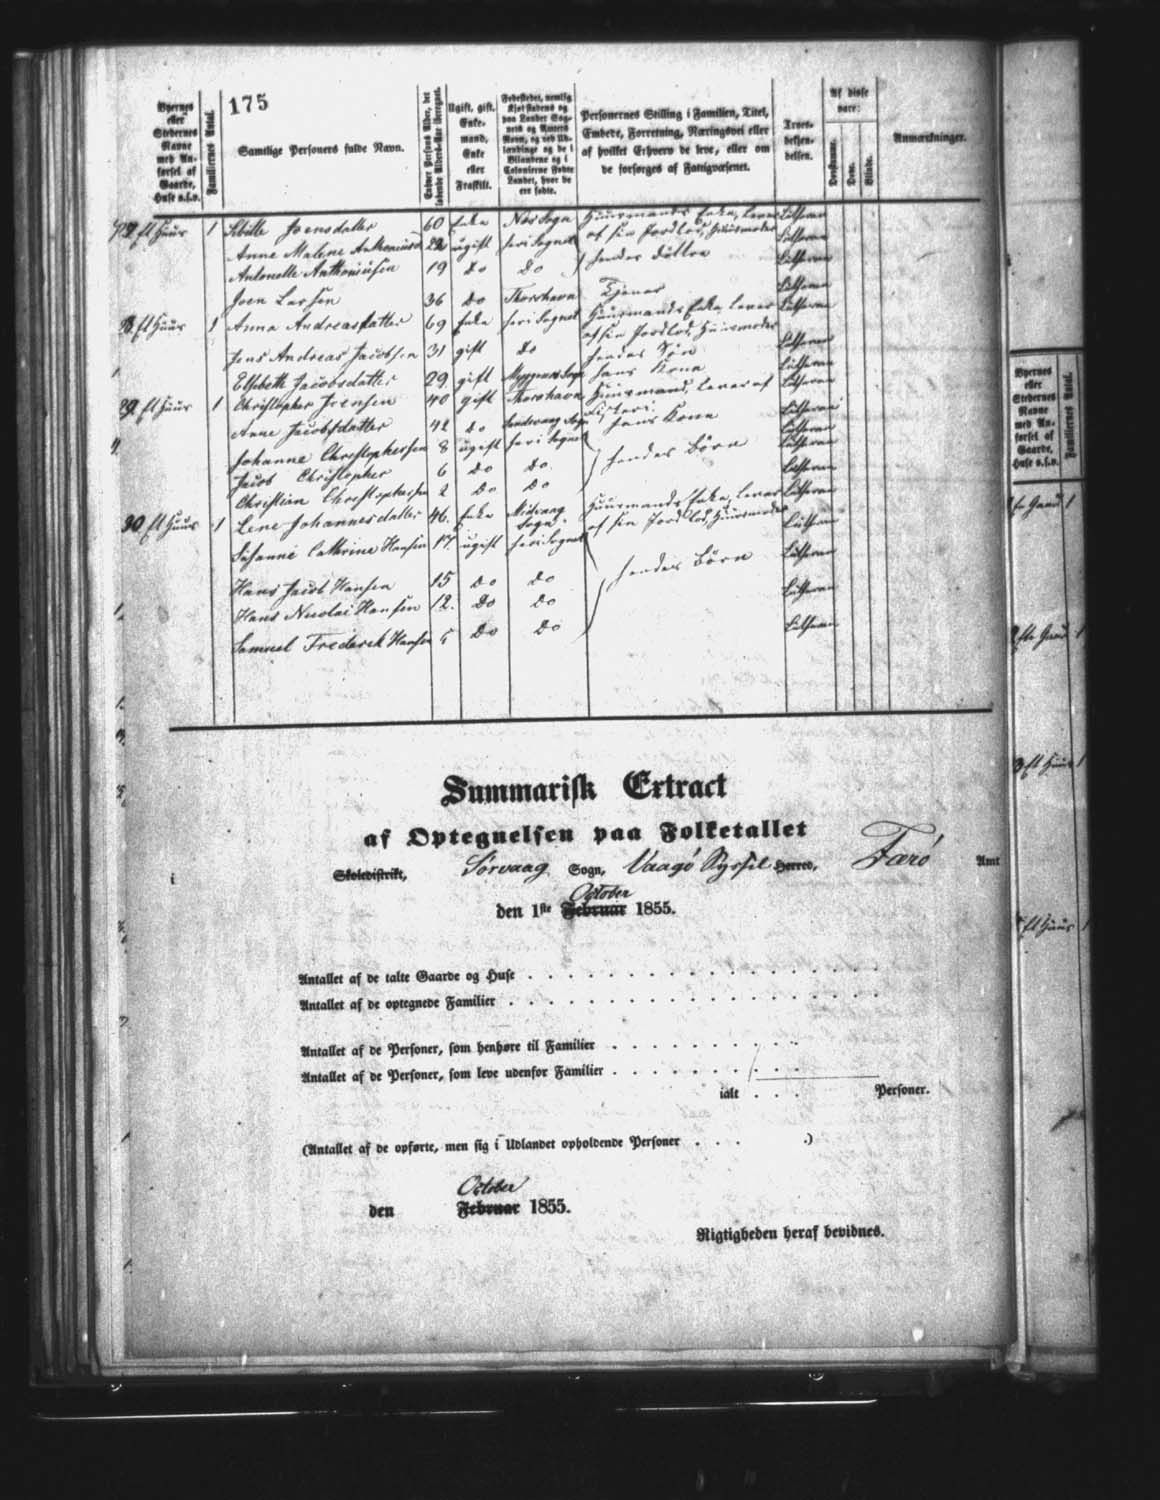 175
Byernes eller Stedernes Navne med Anførsel af Gaarde, Huse o.s.v.
Familiernes Antal.
Samtlige Personers fulde Navn.
Enhver Persons Alder, det løbende Alders-Aar iberegnet.
Ugift, gift, Enkemand, Enke eller Fraskilt.
Fødestedet, nemlig Kjøbstadens og paa Landet Sognets og Amtets Navn, og ved Udlændinge og de i Bilandene og i Colonierne Fødte Landet, hvor de ere fødte.
Personernes Stilling i Familien, Titel, Embede, Forretning, Næringsvei eller af hvilket Erhverv de leve, eller om de forsørges af Fattigvæsenet.
Troesbekjendelsen.
Af disse vare:
Døvstumme.
Døve.
Blinde.
Anmærkninger.
et Huus 1 Sibille Joensdatter 60 Enke Næs Sogn Huusmands Enke, lever af sin Jordlod, Huusmoder Lutheran
Anne Malene 22 ugift her i Sognet Lutheran
Antonette Anthoniusen 19 do do hendes døttre Lutheran
Joen Larsen 36 do Thorshavn Tjener Lutheran
et Huus 1 Anna Andreasdatter 69 Enke her i Sognet Huusmands Enke, lever af sin Jordlod, Huusmoder Lutheran
Jens Andreas Jacobsen 31 gift do hendes Søn Lutheran
Elsebeth Jacobsdatter 29 gift Sogn hans Kone Lutheran
29. et Huus 1 Christopher Jensen 40 gift Thorshavn Huusmand, lever af Fiskeri. Lutheran
Anne Jacobsdatter 42 do Sandevaag Sogn hans Kone Lutheran
Johanne Christophersen 8 ugift her i Sognet Lutheran
Jacob Christopher 6 do do hendes Børn Lutheran
Christian Christophersen 2 do do Lutheran
30 et Huus 1 Lene Johannesdatter 46. Enke Midvaag Sogn. Huusmands Enke, lever af sin Jordlod, Huusmoder Lutheran
Susanne Cathrine Hansen 17. ugift her i Sognet Lutheran
Hans Jacob Hansen 15 do do hendes Børn Lutheran
Hans Nicolai Hansen 12. do do Lutheran
Samuel Frederik Hansen 5 do do Lutheran
Summarisk Extract
af Optegnelsen paa Folketallet
Skoledistrikt, Sørvaag Sogn, Vaagø Syssel Herred, Færø Amt
October
den 1ste Februar 1855.
Antallet af de talte Gaarde og Huse
Antallet af de optegnede Familier
Antallet af de Personer, som henhøre til Familier
Antallet af de Personer, som leve udenfor Familier
ialt . . . Personer.
(Antallet af de opførte, men sig i Udlandet opholdende Personer . . . .)
October
den Februar 1855.
Rigtigheden heraf bevidnes.
Byernes eller Stedernes Navne med Anførsel af Gaarde, Huse o.s.v.
Familiernes Antal.
Gaard 1
Gaard 1
3 et Huus 1
et Huus 1